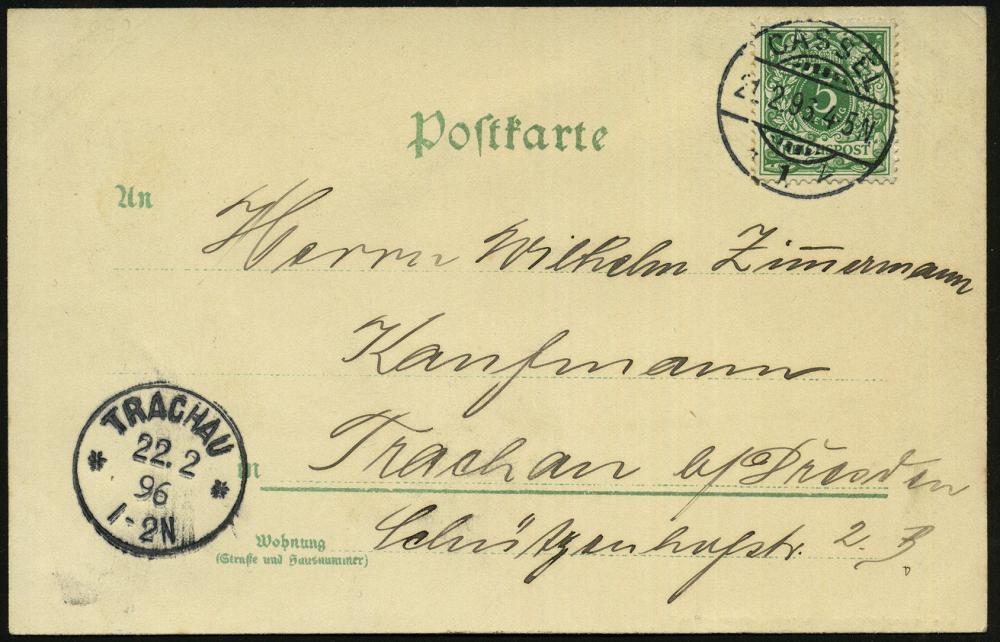 CASSEL
5
21.2.96.4-5N
REICHSPOST
1
Postkarte
An
Herrn Wilhelm Zimmermann
Kaufmann
TRACHAU
22.2
96
1-2N
in Trachau b/Dresden
Wohnung
(Straße und Hausnummer)
Schützenhofstr. 2.